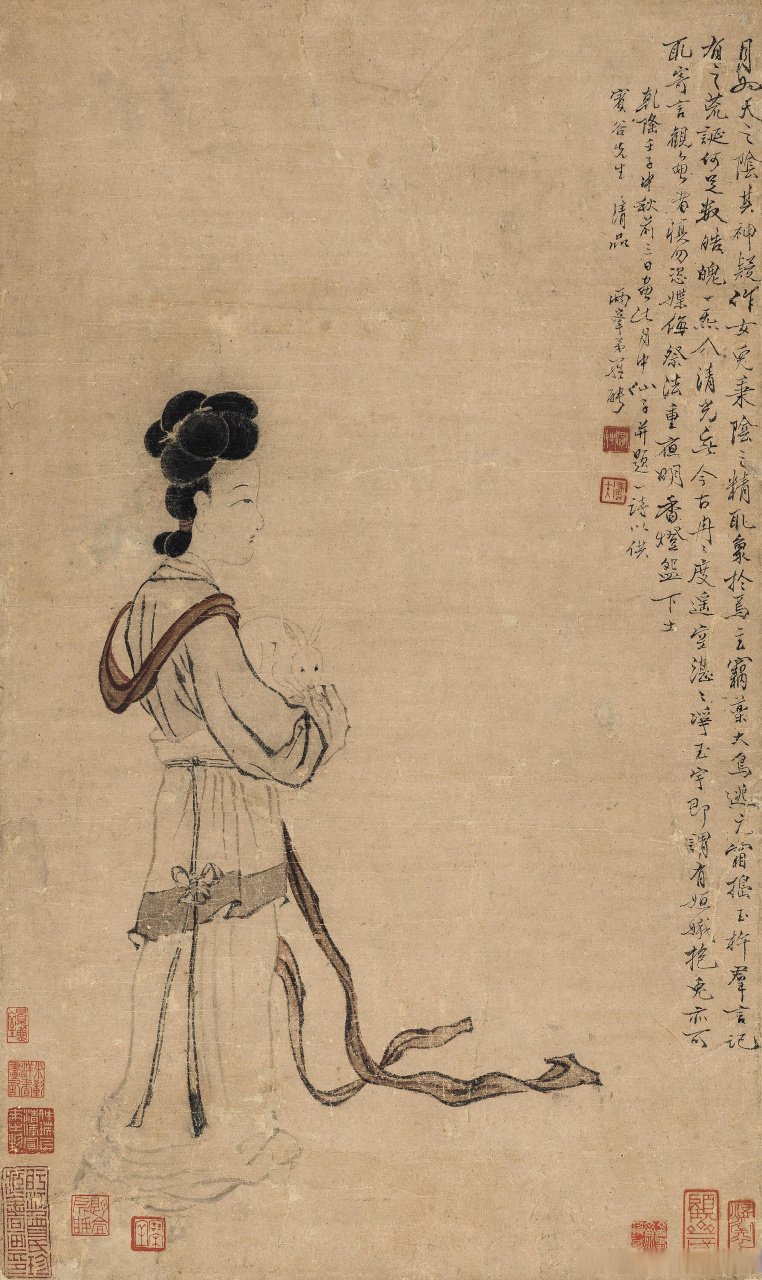 月如天之陰其神疑作女兎乘陰之精耴象於焉主竊藥大鳥逃宵搖玉杵羣言記
有之荒誕何足数皓魄一點清光無今古冉冉度遥空湛湛凈玉宇即謂有姮娥抱兎亦可
耴寄言觀畫者慎勿恣媟侮祭法重夜明香燈盤下土
乾隆壬子中秋前三日畫此月中仙子并題一詩以供
寳谷先生 清品 兩峯弟羅聘